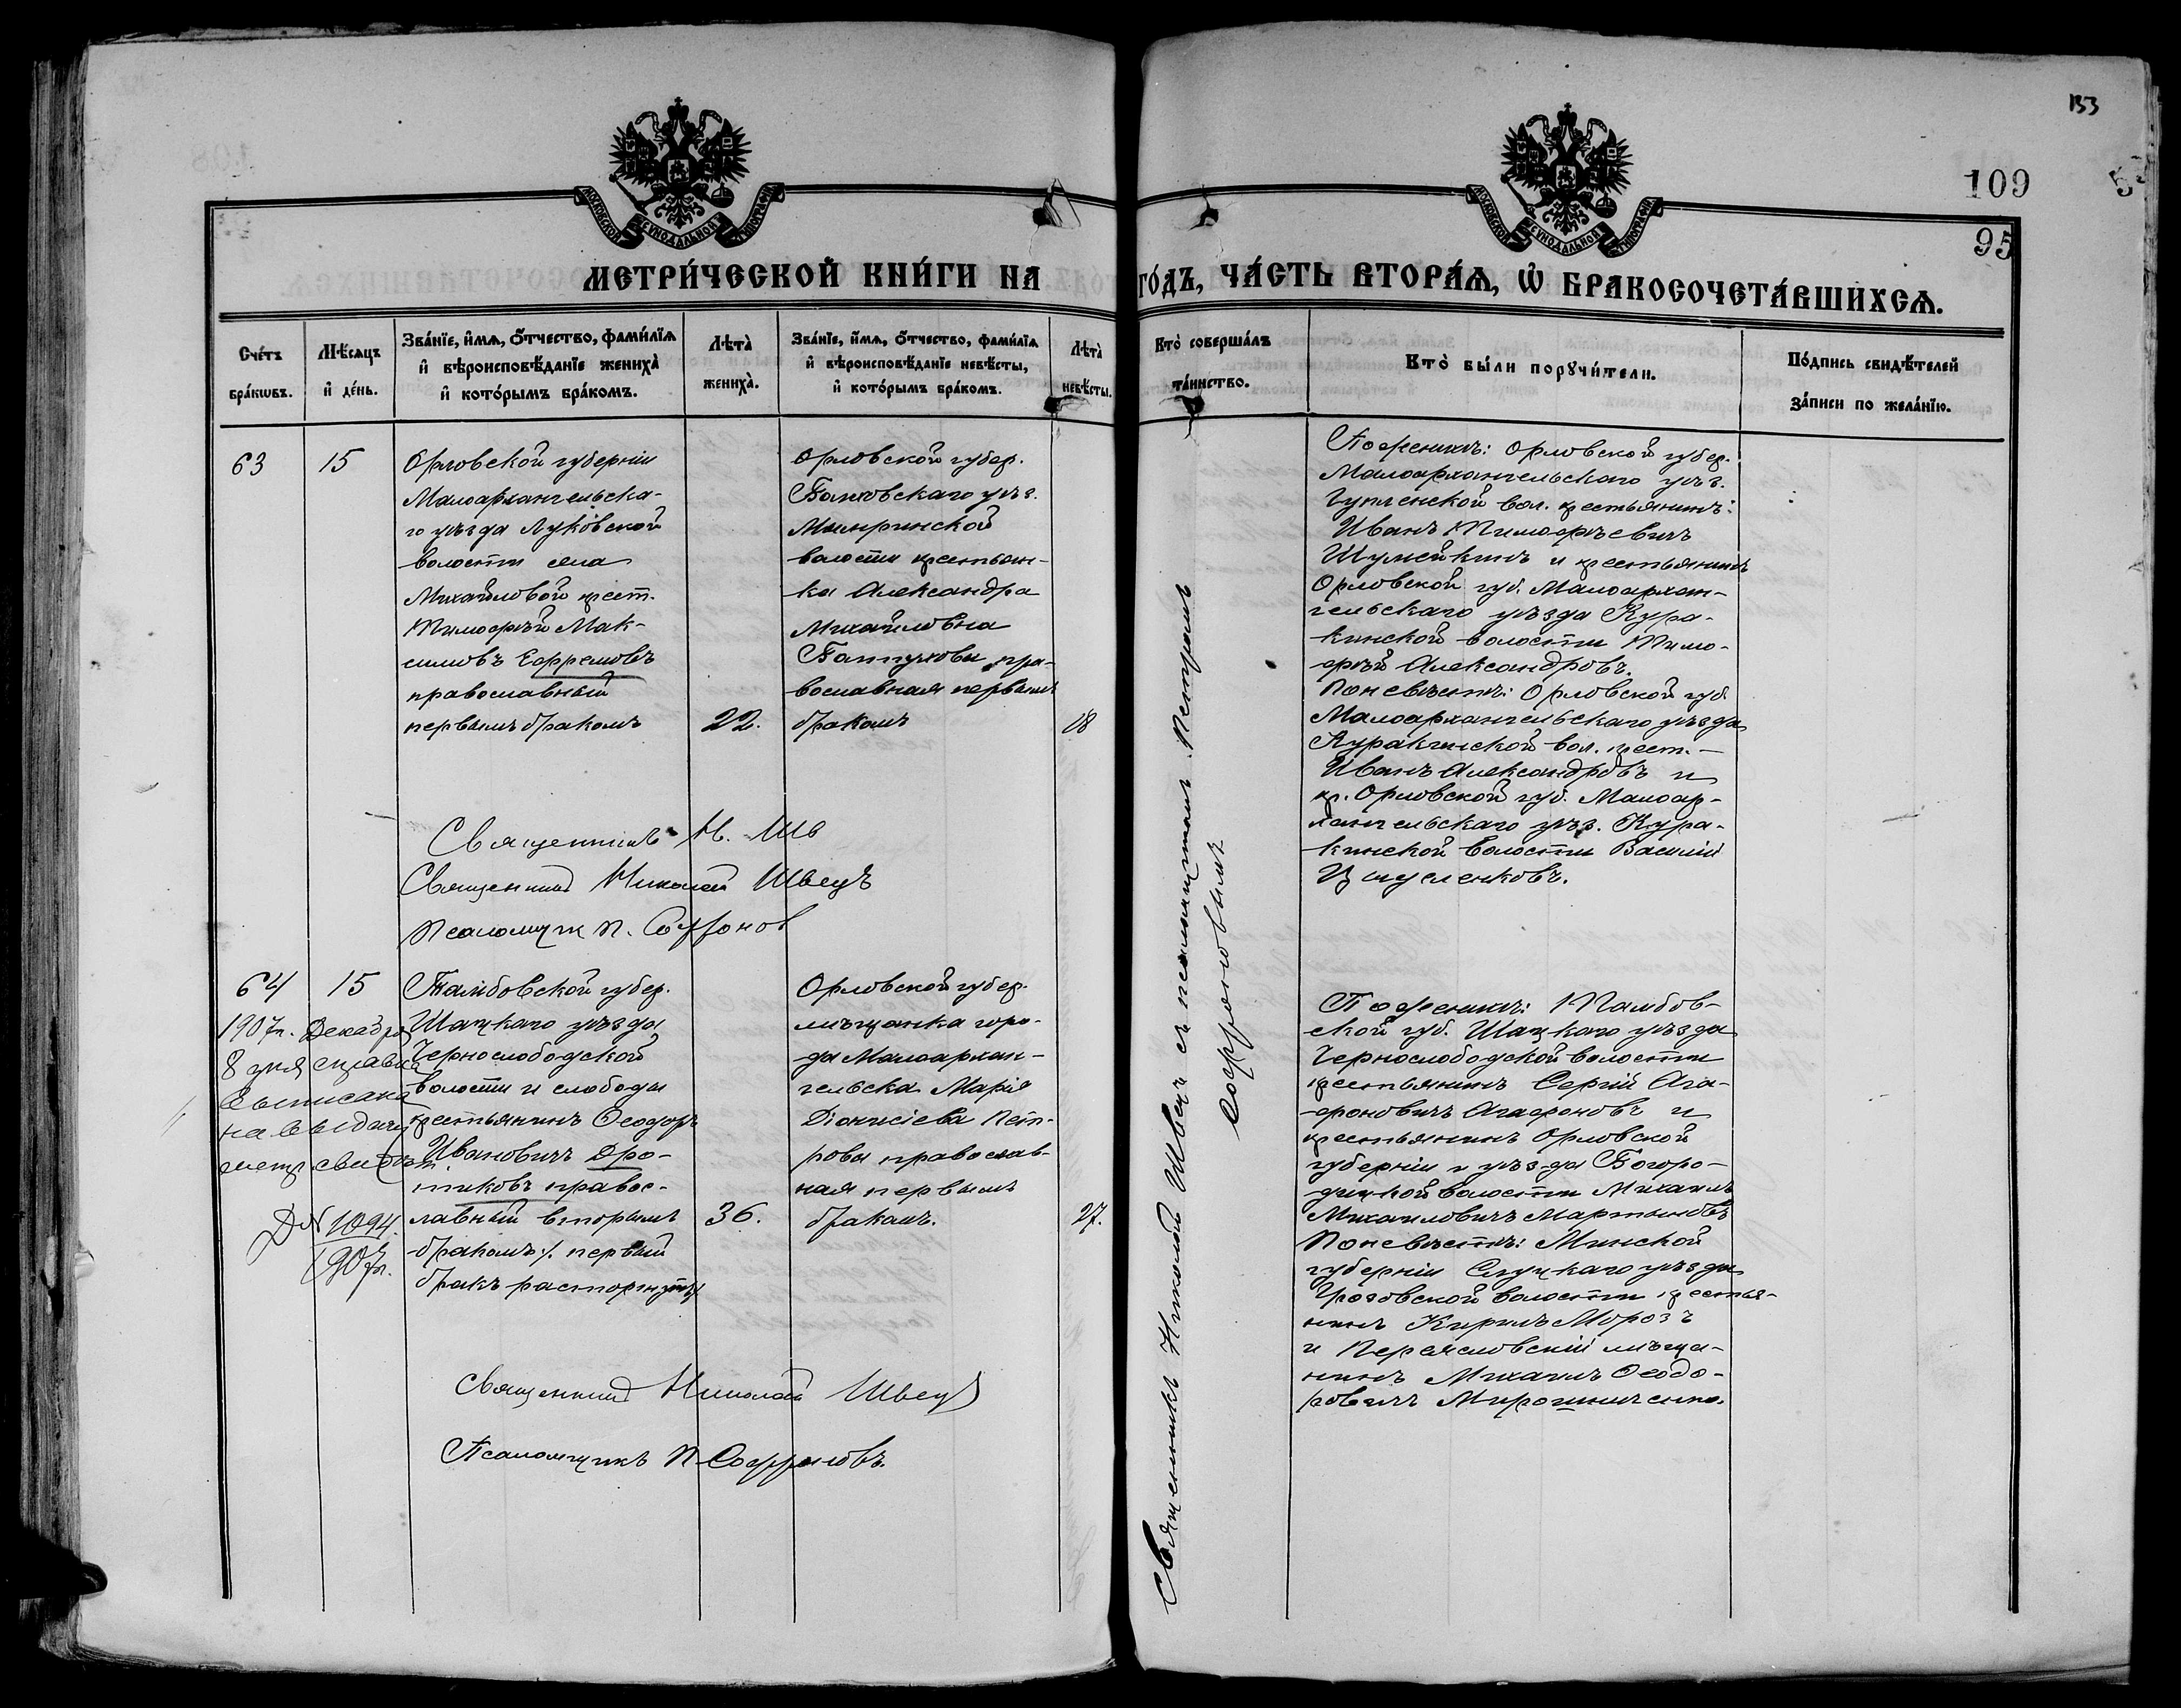 153
109
95
МОСКОВСКОЙ СѴНОДАЛЬНОЙ ТИПОГРАФІИ
МОСКОВСКОЙ СѴНОДАЛЬНОЙ ТИПОГРАФІИ
МЕТРИ́ЧЕСКОЙ КНИ́ГИ НА
ГО́ДЪ, ЧА́СТЬ ВТОРА́Ѧ, Ѽ БРАКОСОЧЕТА́ВШИХСѦ.
Сче́тъ бра́кѡвъ.
Мѣ́сѧцъ и҆ де́нь.
Зва́нїе, и҆́мѧ, ѻ҆́тчество, фами́лїѧ и҆ вѣроисповѣ́данїе жениха̀ и҆ кото́рымъ бра́комъ.
Лѣта̀ жениха̀.
Зва́нїе, и҆́мѧ, ѻ҆́тчество, фами́лїѧ и҆ вѣроисповѣ́данїе невѣ́сты, и҆ кото́рымъ бра́комъ.
Лѣта̀ невѣ́сты.
Кто̀ соверша́лъ та́инство.
Кто̀ бы́ли порꙋчи́тели.
По́дпись свидѣ́телей за́писи по жела́нїю.
63
15
Орловской губерніи
Малоархангельска-
го уѣзда Луковской
волости села
Михайловой крест.
Тимофѣй Мак-
симовъ Ефремовъ
православный
первымъ бракомъ
22.
Орловской губер.
Болховскаго уѣз.
волости крестьян-
ка Александра
Михайловна
пра-
вославная первымъ
бракомъ
18
Священникъ Николай Швецъ съ псаломщикомъ Петромъ
Софроновымъ
По женихѣ: Орловской губер.
Малоархангельскаго уѣз.
вол. крестьянинъ:
Иванъ Тимофѣевичъ
Шумейкинъ и крестьянинъ
Орловской губ. Малоархан-
гельскаго уѣзда Кура-
кинской волости Тимо-
фѣй Александровъ.
По невѣстѣ: Орловской губ.
Малоархангельскаго уѣзда
Куракинской вол. крест.
Иванъ Александровъ и
кр. Орловской губ. Малоар-
хангельскаго уѣз. Кура-
кинской волости Василій
Священникъ Н. Шв
Священникъ Николай Швецъ
Псаломщик П. Софронов
64
15
1907г. Декабря
8 дня справка
выписана
на выдачу
метр. свидѣт.
Д N 1094.
1907г.
Тамбовской губер.
Шацкаго уѣзда
Чернослободской
волости и слободы
крестьянинъ Ѳеодоръ
Ивановичъ Дро-
тиковъ правос-
лавный вторымъ
бракомъ /. первый
бракъ расторгнутъ/
36.
Орловской губер.
мѣщанка горо-
да Малоархан-
гельска Марія
Діонисіева Пет-
рова православ-
ная первымъ
бракомъ.
27.
По женихѣ: Тамбов-
ской губ. Шацкаго уѣзда
Чернослободской волости
крестьянинъ Сергій Ага-
фоновичъ Агафоновъ и
крестьянинъ Орловской
губерніи и уѣзда Богоро-
дицкой волости Михаилъ
Михаиловичъ Мартыновъ
По невѣстѣ: Минской
губерніи Слуцкаго уѣзда
Грозовской волости крестья-
нинъ Кирилъ Морозъ
и Переясловскій мѣща-
нинъ Михаилъ Ѳеодо-
ровичъ Мирошниченко.
Священникъ Николай Швецъ
Псаломщикъ П. Софроновъ.